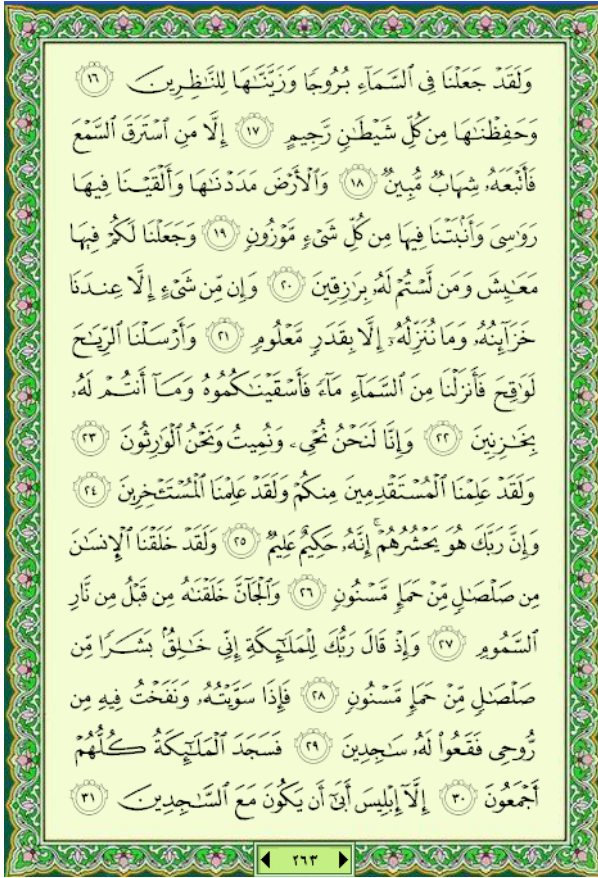 وَلَقَدْ جَعَلْنَا فِى ٱلسَّمَآءِ بُرُوجًا وَزَيَّنَّـٰهَا لِلنَّـٰظِرِينَ ١٦
وَحَفِظْنَـٰهَا مِن كُلِّ شَيْطَـٰنٍ رَّجِيمٍ ١٧ إِلَّا مَنِ ٱسْتَرَقَ ٱلسَّمْعَ
فَأَتْبَعَهُۥ شِهَابٌ مُّبِينٌ ١٨ وَٱلْأَرْضَ مَدَدْنَـٰهَا وَأَلْقَيْنَا فِيهَا
رَوَٰسِىَ وَأَنۢبَتْنَا فِيهَا مِن كُلِّ شَىْءٍ مَّوْزُونٍ ١٩ وَجَعَلْنَا لَكُمْ فِيهَا
مَعَـٰيِشَ وَمَن لَّسْتُمْ لَهُۥ بِرَٰزِقِينَ ٢٠ وَإِن مِّن شَىْءٍ إِلَّا عِندَنَا
خَزَآئِنُهُۥ وَمَا نُنَزِّلُهُۥٓ إِلَّا بِقَدَرٍ مَّعْلُومٍ ٢١ وَأَرْسَلْنَا ٱلرِّيَـٰحَ
لَوَٰقِحَ فَأَنزَلْنَا مِنَ ٱلسَّمَآءِ مَآءً فَأَسْقَيْنَـٰكُمُوهُ وَمَآ أَنتُمْ لَهُۥ
بِخَـٰزِنِينَ ٢٢ وَإِنَّا لَنَحْنُ نُحْىِۦ وَنُمِيتُ وَنَحْنُ ٱلْوَٰرِثُونَ ٢٣
وَلَقَدْ عَلِمْنَا ٱلْمُسْتَقْدِمِينَ مِنكُمْ وَلَقَدْ عَلِمْنَا ٱلْمُسْتَـْٔخِرِينَ ٢٤
وَإِنَّ رَبَّكَ هُوَ يَحْشُرُهُمْ ۚ إِنَّهُۥ حَكِيمٌ عَلِيمٌ ٢٥ وَلَقَدْ خَلَقْنَا ٱلْإِنسَـٰنَ
مِن صَلْصَـٰلٍ مِّنْ حَمَإٍ مَّسْنُونٍ ٢٦ وَٱلْجَآنَّ خَلَقْنَـٰهُ مِن قَبْلُ مِن نَّارِ
ٱلسَّمُومِ ٢٧ وَإِذْ قَالَ رَبُّكَ لِلْمَلَـٰٓئِكَةِ إِنِّى خَـٰلِقٌۢ بَشَرًا مِّن
صَلْصَـٰلٍ مِّنْ حَمَإٍ مَّسْنُونٍ ٢٨ فَإِذَا سَوَّيْتُهُۥ وَنَفَخْتُ فِيهِ مِن
رُّوحِى فَقَعُوا۟ لَهُۥ سَـٰجِدِينَ ٢٩ فَسَجَدَ ٱلْمَلَـٰٓئِكَةُ كُلُّهُمْ
أَجْمَعُونَ ٣٠ إِلَّآ إِبْلِيسَ أَبَىٰٓ أَن يَكُونَ مَعَ ٱلسَّـٰجِدِينَ ٣١
٢٦٣